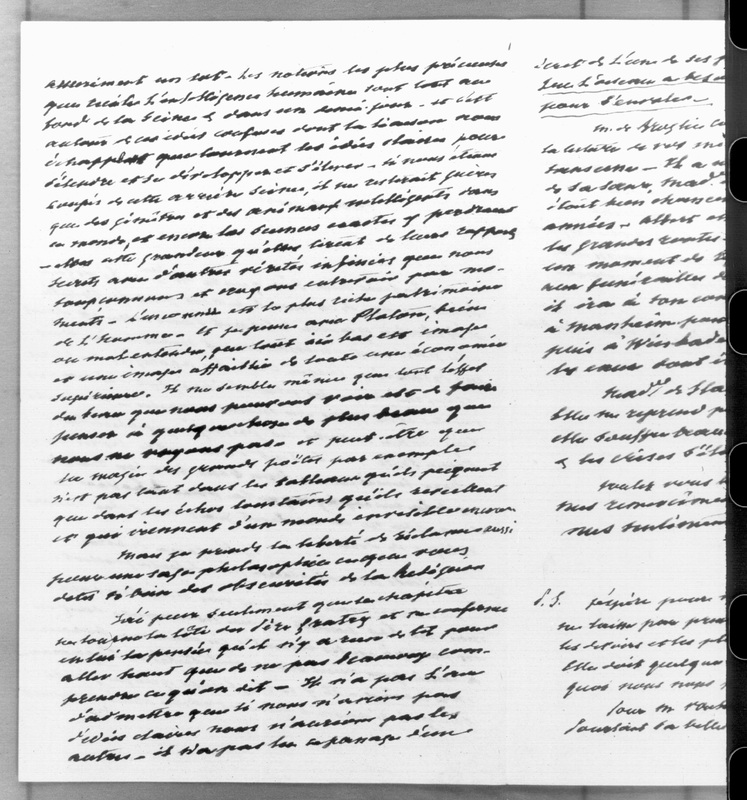 assurément un sot. Les notions les plus précieuses
que recèle l'intelligence humaine sont tout au
fond de la Scène & dans un demi jour. et c'est
autour de ces idées confuses dont la liaison nous
échappe que tournent les idées claires pour
s'étendre et se développer et s'élever. Si nous étions
coupés de cette arrière Scène, il ne resterait guères
que des géomètres et des animaux intelligents dans
ce monde, et encore les Sciences exactes y perdraient
elles cette grandeur qu'elles tirent de leurs rapports
secrets avec d'autres vérités infinies que nous
soupçonnons et croyons entrevoir par mo-
ments. L'inconnu est la plus riche patrimoine
de l'homme. et je pense avec Platon, bien
ou mal entendu, que tout ici bas est image
et une image affaiblie de toute une économie
supérieure. Il me semble même que tout l'effet
du beau que nous pouvons voir est de faire
penser à quelque chose de plus beau que
nous ne voyons pas. et peut-être que
la magie des grands poëtes par exemple
n'est pas tant dans les tableaux qu'ils peignent
que dans les échos lointains qu'ils réveillent
et qui viennent d'un monde invisible
Mais je prends la liberté de réclamer aussi
pour une sage philosophie ce que vous
dites si bien des obscurités de la Religion
J'ai peur seulement que le chapitre
ne tourne la tête du Père Gratry et ne confirme
en lui la pensée qu'il n'y a rien de tel pour
aller haut que de ne pas beaucoup com-
prendre ce qu'on dit. Il n'a pas l'air
d'admettre que si nous n'avions pas
d'idées claires nous n'aurions pas les
autres. il n'a pas lu
secret de l'une de ses
pour s'envoler.
M. de Broglie
la lecture de vos
Il a
de sa Sœur, Mad.
étoit bien
années. Albert et
les grandes routes
un moment de
aux funérailles de
il ira à son
à Manheim pour
puis à Wiesbade
les eaux dont il
Mad. de
Elle ne reprend
elle souffre
& les crises
nos
nos sentimens
P.S. J'espère pour
ne laisse pas
les désirs et les
Elle doit quelque
quoi nous nous
Pour
Pourtant la belle